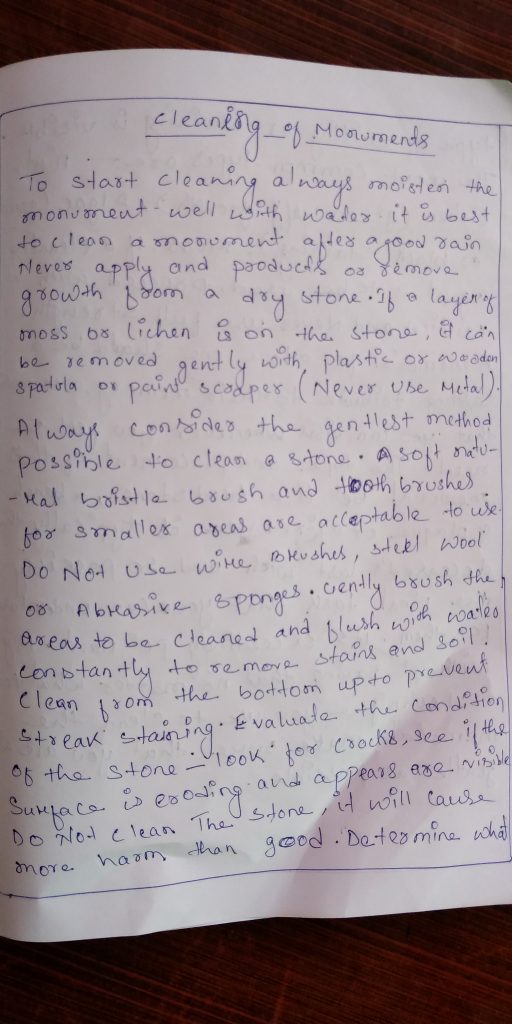 Cleaning of Monuments
To start cleaning always moisten the
monument well with water it is best
to clean a monument after a good rain
Never apply and products or remove
growth from a dry stone. If a layer of
moss or lichen is on the stone, it can
be removed gently with plastic or wooden
spatula or paint scraper (Never Use Metal).
Always consider the gentlest method
possible to clean a stone. A soft natu-
-ral bristle brush and tooth brushes
for smaller areas are acceptable to use.
Do Not Use wire Brushes, steel wool
or Abrasive sponges. Gently brush the
areas to be cleaned and flush with water
constantly to remove stains and soil.
Clean from the bottom up to prevent
streak staining. Evaluate the condition
of the stone - look for cracks, see if the
Surface is eroding and appears are visible
Do Not clean The stone, it will cause
more harm than good. Determine what